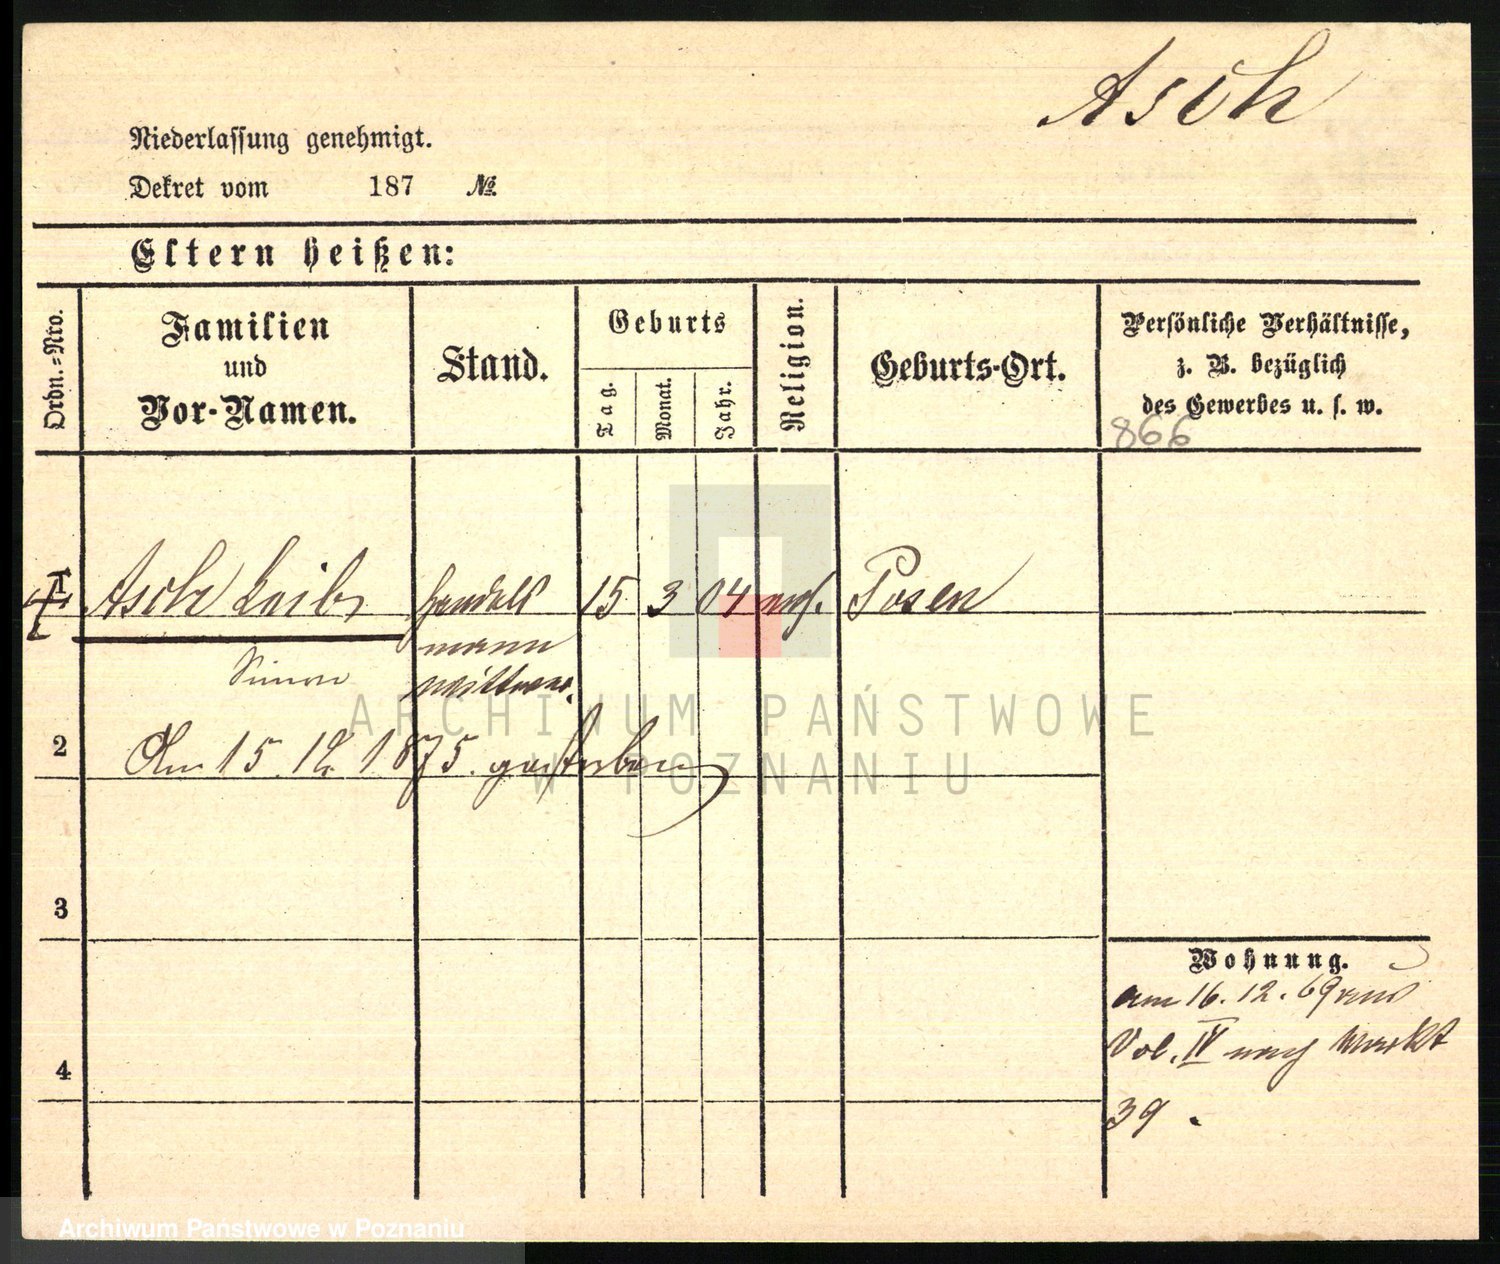 Asch
Niederlassung genehmigt.
Dekret vom 187 №
Eltern heißen:
Ordn.=Nro.
Familien
und
Vor-Namen.
Stand.
Geburts
Tag.
Monat.
Jahr.
Religion.
Geburts-Ort.
Persönliche Verhältnisse,
z. B. bezüglich
des Gewerbes u. s. w.
866
1 Asch Leib Handels 15 3 04 mos. Posen
mann
Simon Wittwer.
2 Am 15. 12. 1875. gestorben
3
4
Wohnung.
am 16. 12. 69 aus
Vol. IV nach Markt
39.
ARCHIWUM PAŃSTWOWE
W POZNANIU
Archiwum Państwowe w Poznaniu